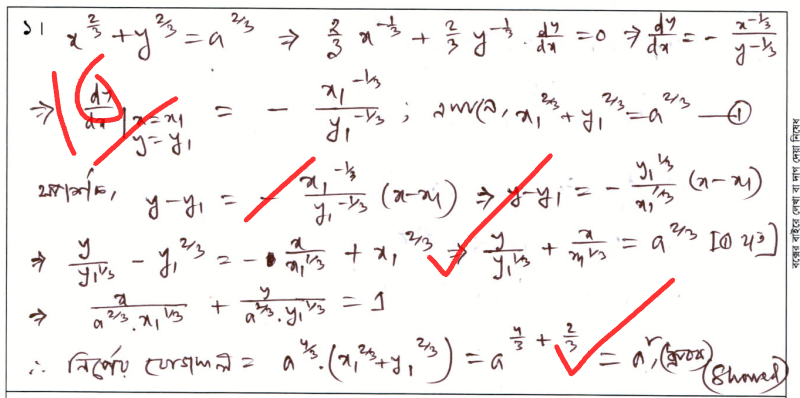 ১। x^{2/3} + y^{2/3} = a^{2/3} ⇒ 2/3 x^{-1/3} + 2/3 y^{-1/3} · dy/dx = 0 ⇒ dy/dx = - x^{-1/3}/y^{-1/3}
10
⇒ dy/dx | x=x₁ y=y₁ = - x₁^{-1/3}/y₁^{-1/3} ; x₁^{2/3} + y₁^{2/3} = a^{2/3} —①
y-y₁ = - x₁^{-1/3}/y₁^{-1/3} (x-x₁) ⇒ y-y₁ = - y₁^{1/3}/x₁^{1/3} (x-x₁)
⇒ y/y₁^{1/3} - y₁^{2/3} = - x/x₁^{1/3} + x₁^{2/3} ⇒ y/y₁^{1/3} + x/x₁^{1/3} = a^{2/3} [① হতে]
⇒ x/(a^{2/3}·x₁^{1/3}) + y/(a^{2/3}·y₁^{1/3}) = 1
∴ নির্ণেয় যোগফল = a^{4/3}·(x₁^{2/3} + y₁^{2/3}) = a^{4/3 + 2/3} = a², (ধ্রুবক) (Showed)
বক্সের বাইরে লেখা বা দাগ দেয়া নিষেধ